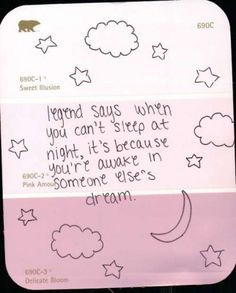 690C
690C-1
Sweet Illusion
legend says when
you can't sleep at
night, it's because
you're awake in
690C-2
someone else's
Pink Amour
dream.
690C-3
Delicate Bloom